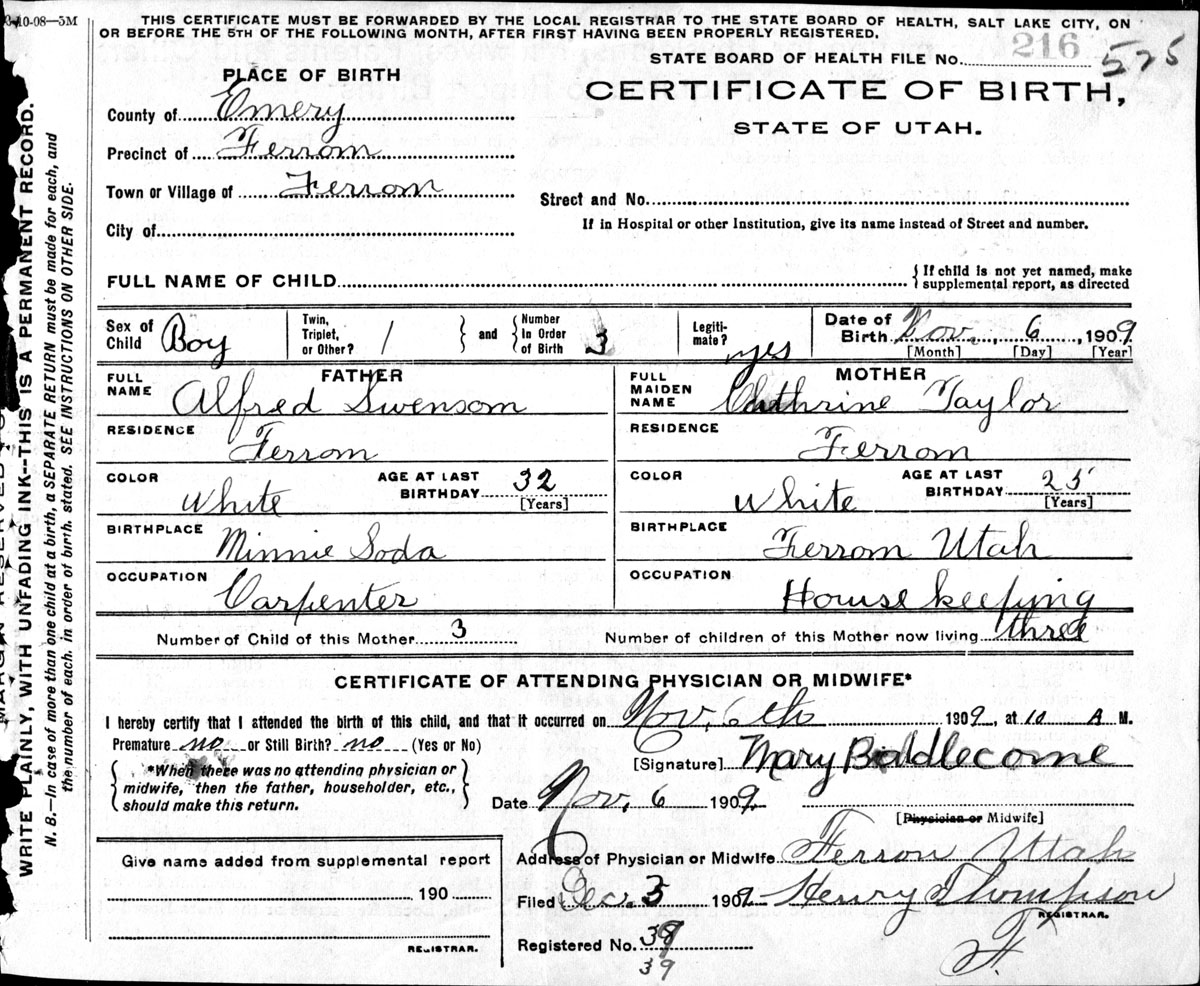 3-10-08—5M
THIS CERTIFICATE MUST BE FORWARDED BY THE LOCAL REGISTRAR TO THE STATE BOARD OF HEALTH, SALT LAKE CITY, ON
OR BEFORE THE 5TH OF THE FOLLOWING MONTH, AFTER FIRST HAVING BEEN PROPERLY REGISTERED.
216
STATE BOARD OF HEALTH FILE NO. 575
PLACE OF BIRTH
CERTIFICATE OF BIRTH,
STATE OF UTAH.
County of Emery
Precinct of Ferrom
Town or Village of Ferrom
Street and No.
City of
If in Hospital or other Institution, give its name instead of Street and number.
FULL NAME OF CHILD
{If child is not yet named, make
supplemental report, as directed
Sex of Child Boy
Twin, Triplet, or Other? 1
and
Number In Order of Birth 3
Legiti-mate? yes
Date of Birth Nov. 6, 1909
[Month] [Day] [Year]
FATHER
FULL NAME Alfred Swensom
RESIDENCE Ferrom
COLOR White
AGE AT LAST BIRTHDAY 32
[Years]
BIRTHPLACE Minnie Soda
OCCUPATION Carpenter
MOTHER
FULL MAIDEN NAME Cathrine Taylor
RESIDENCE Ferrom
COLOR White
AGE AT LAST BIRTHDAY 25
[Years]
BIRTHPLACE Ferrom Utah
OCCUPATION House keeping
Number of Child of this Mother 3
Number of children of this Mother now living three
CERTIFICATE OF ATTENDING PHYSICIAN OR MIDWIFE*
I hereby certify that I attended the birth of this child, and that it occurred on Nov. 6th 1909, at 10 A M.
Premature no or Still Birth? no (Yes or No)
[Signature] Mary Biddlecome
*When there was no attending physician or
midwife, then the father, householder, etc.,
should make this return.
Date Nov. 6 1909.
[Physician or Midwife]
Give name added from supplemental report
190
REGISTRAR.
Address of Physician or Midwife Ferron Utah
Filed Dec. 3 1909 Henry Thompson
REGISTRAR.
Registered No. 39
39
MARGIN RESERVED
WRITE PLAINLY, WITH UNFADING INK--THIS IS A PERMANENT RECORD.
N. B.—In case of more than one child at a birth, a SEPARATE RETURN must be made for each, and
the number of each, in order of birth, stated. SEE INSTRUCTIONS ON OTHER SIDE.